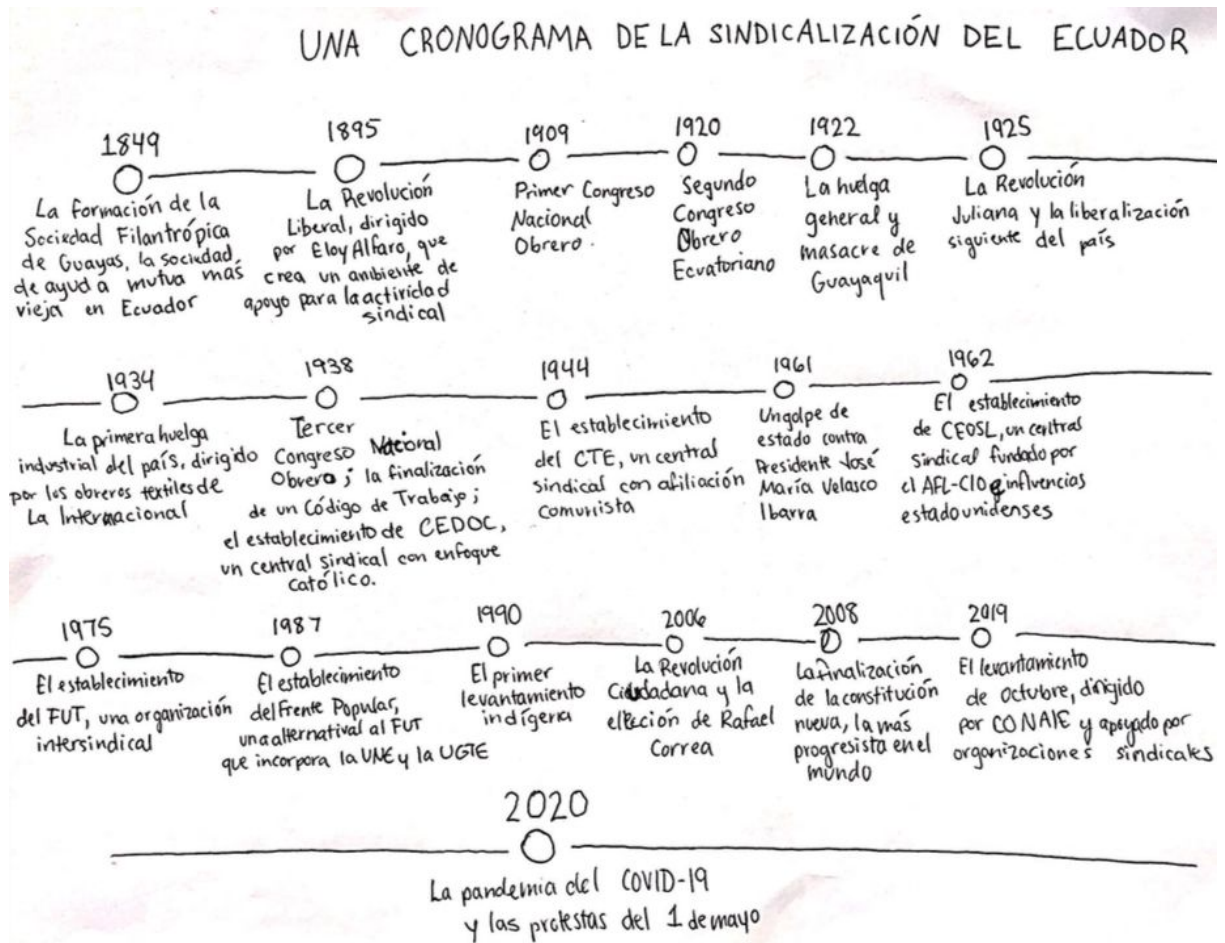 UNA CRONOGRAMA DE LA SINDICALIZACIÓN DEL ECUADOR
1849
La formación de la
Sociedad Filantrópica
de Guayas, la sociedad
de ayuda mutua más
vieja en Ecuador
1895
La Revolución
Liberal, dirigido
por Eloy Alfaro, que
crea un ambiente de
apoyo para la actividad
sindical
1909
Primer Congreso
Nacional
Obrero.
1920
Segundo
Congreso
Obrero
Ecuatoriano
1922
La huelga
general y
masacre de
Guayaquil
1925
La Revolución
Juliana y la liberalización
siguiente del país
1934
La primera huelga
industrial del país, dirigido
por los obreros textiles de
La Internacional
1938
Tercer
Congreso Nacional
Obrero; la finalización
de un Código de Trabajo;
el establecimiento de CEDOC,
un central sindical con enfoque
católico.
1944
El establecimiento
del CTE, un central
sindical con afiliación
comunista
1961
Un golpe de
estado contra
Presidente José
María Velasco
Ibarra
1962
El establecimiento
de CEOSL, un central
sindical fundado por
el AFL-CIO e influencias
estadounidenses
1975
El establecimiento
del FUT, una organización
intersindical
1987
El establecimiento
del Frente Popular,
una alternatival al FUT
que incorpora la UNE y la UGTE
1990
El primer
levantamiento
indígena
2006
La Revolución
Ciudadana y la
elección de Rafael
Correa
2008
La finalización
de la constitución
nueva, la más
progresista en el
mundo
2019
El levantamiento
de Octubre, dirigido
por CONAIE y apoyado por
organizaciones sindicales
2020
La pandemia del COVID-19
y las protestas del 1 de mayo